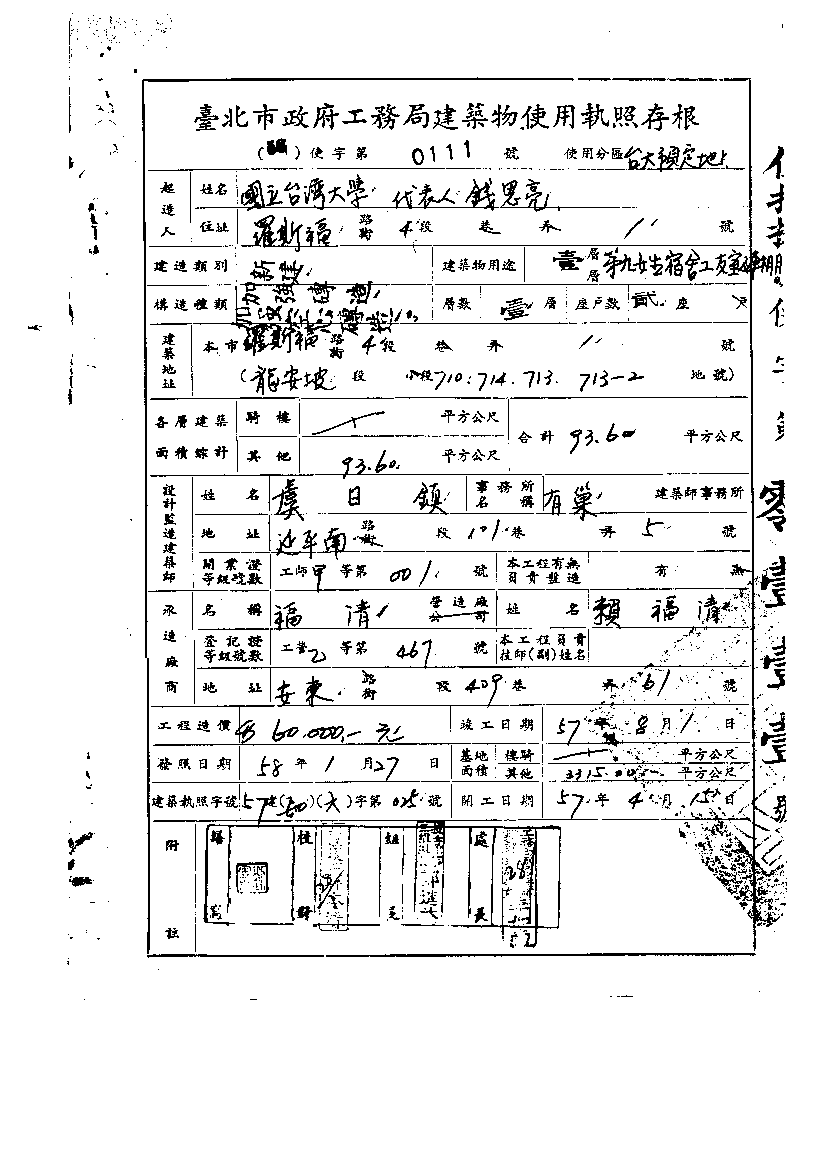 臺北市政府工務局建築物使用執照存根
( ) 使字第 0111 號 使用分區 台大預定地
起造人 姓名 國立台湾大學 代表人 錢思亮
住址 羅斯福 路街 4 段 巷 弄 1 號
建造類別 新建 建築物用途 壹層 層 第九女生宿舍工友室
構造種類 加強磚造 層數 壹 層 座戶數 貳 座 戶
建築地址 本市 羅斯福 路街 4 段 巷 弄 1 號
(龍安坡 段 小段 710:714.713. 713-2 地號)
各層建築面積綜計 騎樓 平方公尺 合計 93.60 平方公尺
其他 93.60. 平方公尺
設計監造建築師 姓名 虞日鎮 事務所名稱 有巢 建築師事務所
地址 延平南 路街 段 101 巷 弄 5 號
開業證等級號數 工師 甲 等第 001 號 本工程有無負責監造 有 無
承造廠商 名稱 福清 營造廠公司 姓名 賴福清
登記證等級號數 工營 乙 等第 467 號 本工程負責技師(副)姓名
地址 安東 路街 段 409 巷 弄 61 號
工程造價 60,000.- 元 竣工日期 57 年 8 月 1 日
發照日期 58 年 1 月 27 日 基地面積 樓騎 平方公尺 其他 2315.00 平方公尺
建築執照字號 57 建( )(大)字第 025 號 開工日期 57 年 4 月 15 日
附註
使字第零壹壹壹號